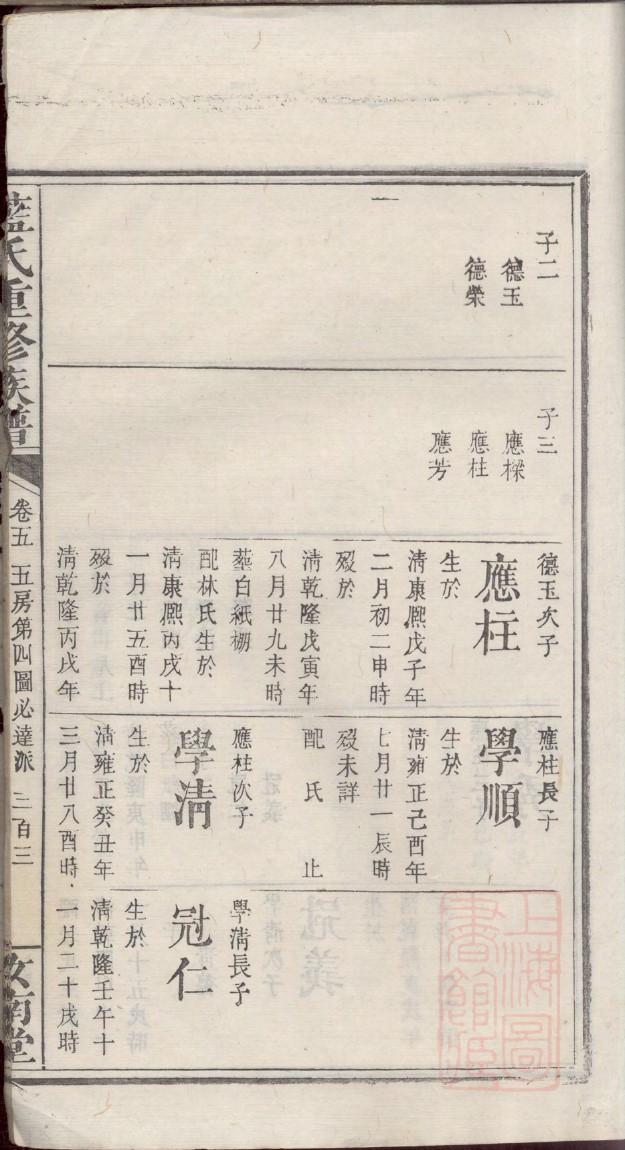 子二
德玉
德榮
子三
應樑
應柱
應芳
德玉次子
應柱
生於
清康熙戊子年
二月初二申時
歿於
清乾隆戊寅年
八月廿九未時
葬白紙棚
配林氏生於
清康熙丙戌十
一月廿五酉時
歿於
清乾隆丙戌年
應柱長子
學順
生於
清雍正己酉年
七月廿一辰時
歿未詳
配氏 止
應柱次子
學清
生於
清雍正癸丑年
三月廿八酉時
學清長子
冠仁
生於
清乾隆壬午十
一月二十戌時
藍氏重修族譜
卷五 五房第四圖必達派 三百三
汝南堂
上海圖
書館藏